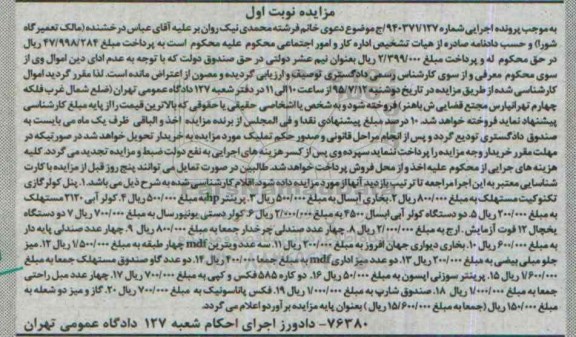 مزایده نوبت اول
به موجب پرونده اجرایی شماره ۹۴۰۳۷۱/۱۲۷/ج موضوع دعوی خانم فرشته محمدی نیک روان بر علیه آقای عباس درخشنده (مالک تعمیرگاه
شورا) و حسب دادنامه صادره از هیات تشخیص اداره کار و امور اجتماعی محکوم علیه محکوم است به پرداخت مبلغ ۴۷/۹۹۸/۲۸۴ ریال
در حق محکوم له و پرداخت مبلغ ۲/۳۹۹/۰۰۰ ریال به عنوان نیم عشر دولتی در حق صندوق دولت که با توجه به عدم ادای دین اموال وی از
سوی محکوم معرفی و از سوی کارشناس رسمی دادگستری توصیف و ارزیابی گردیده و مصون از اعتراض مانده است. لذا مقرر گردید اموال
کارشناسی شده از طریق مزایده در تاریخ دوشنبه از ساعت ۱۰ الی ۱۱ در دفتر شعبه ۱۲۷ دادگاه عمومی تهران (ضلع شمال غرب فلکه
چهارم تهرانپارس مجتمع قضایی ش باهنر) فروخته شود و به شخص یا اشخاص حقیقی یا حقوقی که بالاترین قیمت را از پایه مبلغ کارشناسی
پیشنهاد نماید فروخته خواهد شد. ۱۰ درصد مبلغ پیشنهادی نقدا و فی المجلس از برنده مزایده اخذ و الباقی ظرف یک ماه می بایست به
صندوق دادگستری تودیع گردد و پس از انجام مراحل قانونی و صدور حکم تملیک مورد مزایده به خریدار تحویل خواهد شد در صورتیکه در
مهلت مقرر خریدار وجه مزایده را پرداخت ننماید سپرده وی پس از کسر هزینه های اجرایی به نفع دولت ضبط و مزایده تجدید می گردد. کلیه
هزینه های اجرایی از محکوم علیه اخذ و از محل فروش پرداخت خواهد شد. طالبین در صورت تمایل می توانند پنج روز قبل از مزایده با کارت
شناسایی معتبر به این اجرا مراجعه تا ترتیب بازدید آنها از مورد مزایده داده شود. اقلام کارشناسی شده به شرح ذیل می باشد ۱. پنل کولر گازی
تکنوکیت مستهلک به مبلغ ۸۰۰/۰۰۰ ریال ۲. بخاری آبسال به مبلغ ۵۰۰/۰۰۰ ریال ۳. پرینتر hp به مبلغ ۵۰۰/۰۰۰ ریال ۴. کولر آبی ۳۱۳۰ مستهلک
به مبلغ ۲۰۰/۰۰۰ ریال ۵. دو دستگاه کولر آبی ابسال ۴۵۰۰ به مبلغ ۲/۰۰۰/۰۰۰ ریال ۶. کولر دستی یونیورسال به مبلغ ۷۰۰/۰۰۰ ریال ۷. دو دستگاه
یخچال ۱۲ فوت آزمایش. ارج به مبلغ ۲/۰۰۰/۰۰۰ ریال ۸. چهار عدد صندلی چرخدار جمعا به مبلغ ۸۰۰/۰۰۰ ریال ۹. چهار عدد صندلی پایه دار
به مبلغ ۶۰۰/۰۰۰ ریال ۱۰. بخاری دیواری جهان افروز به مبلغ ۲۰۰/۰۰۰ ریال ۱۱. سه عدد ویترین mdf چهار طبقه به مبلغ ۱/۵۰۰/۰۰۰ ریال ۱۲. میز
جلو مبلی بیضی به مبلغ ۲۰۰/۰۰۰ ریال ۱۳. دو عدد میز اداری mdf به مبلغ جمعا ۴۰۰/۰۰۰ ریال ۱۴. دو عدد گاو صندوق مستهلک جمعا به مبلغ
۱/۶۰۰/۰۰۰ ریال ۱۵. پرینتر سوزنی اپسون به مبلغ ۵۰/۰۰۰ ریال ۱۶. دو کاره ۵۸۵ فکس و کپی به مبلغ ۷۰۰/۰۰۰ ریال ۱۷. چهار عدد مبل راحتی
جمعا به مبلغ ۱/۰۰۰/۰۰۰ ریال ۱۸. صندوق شارپ به مبلغ ۱/۰۰۰/۰۰۰ ریال ۱۹. فکس پاناسونیک به مبلغ ۷۰۰/۰۰۰ ریال ۲۰. گاز و میز دو شعله به
مبلغ ۱۵۰/۰۰۰ ریال (جمعا به مبلغ ۱۵/۶۰۰/۰۰۰ ریال) بعنوان پایه مزایده برآورد و اعلام می گردد.
۷۶۳۸۰- دادورز اجرای احکام شعبه ۱۲۷ دادگاه عمومی تهران